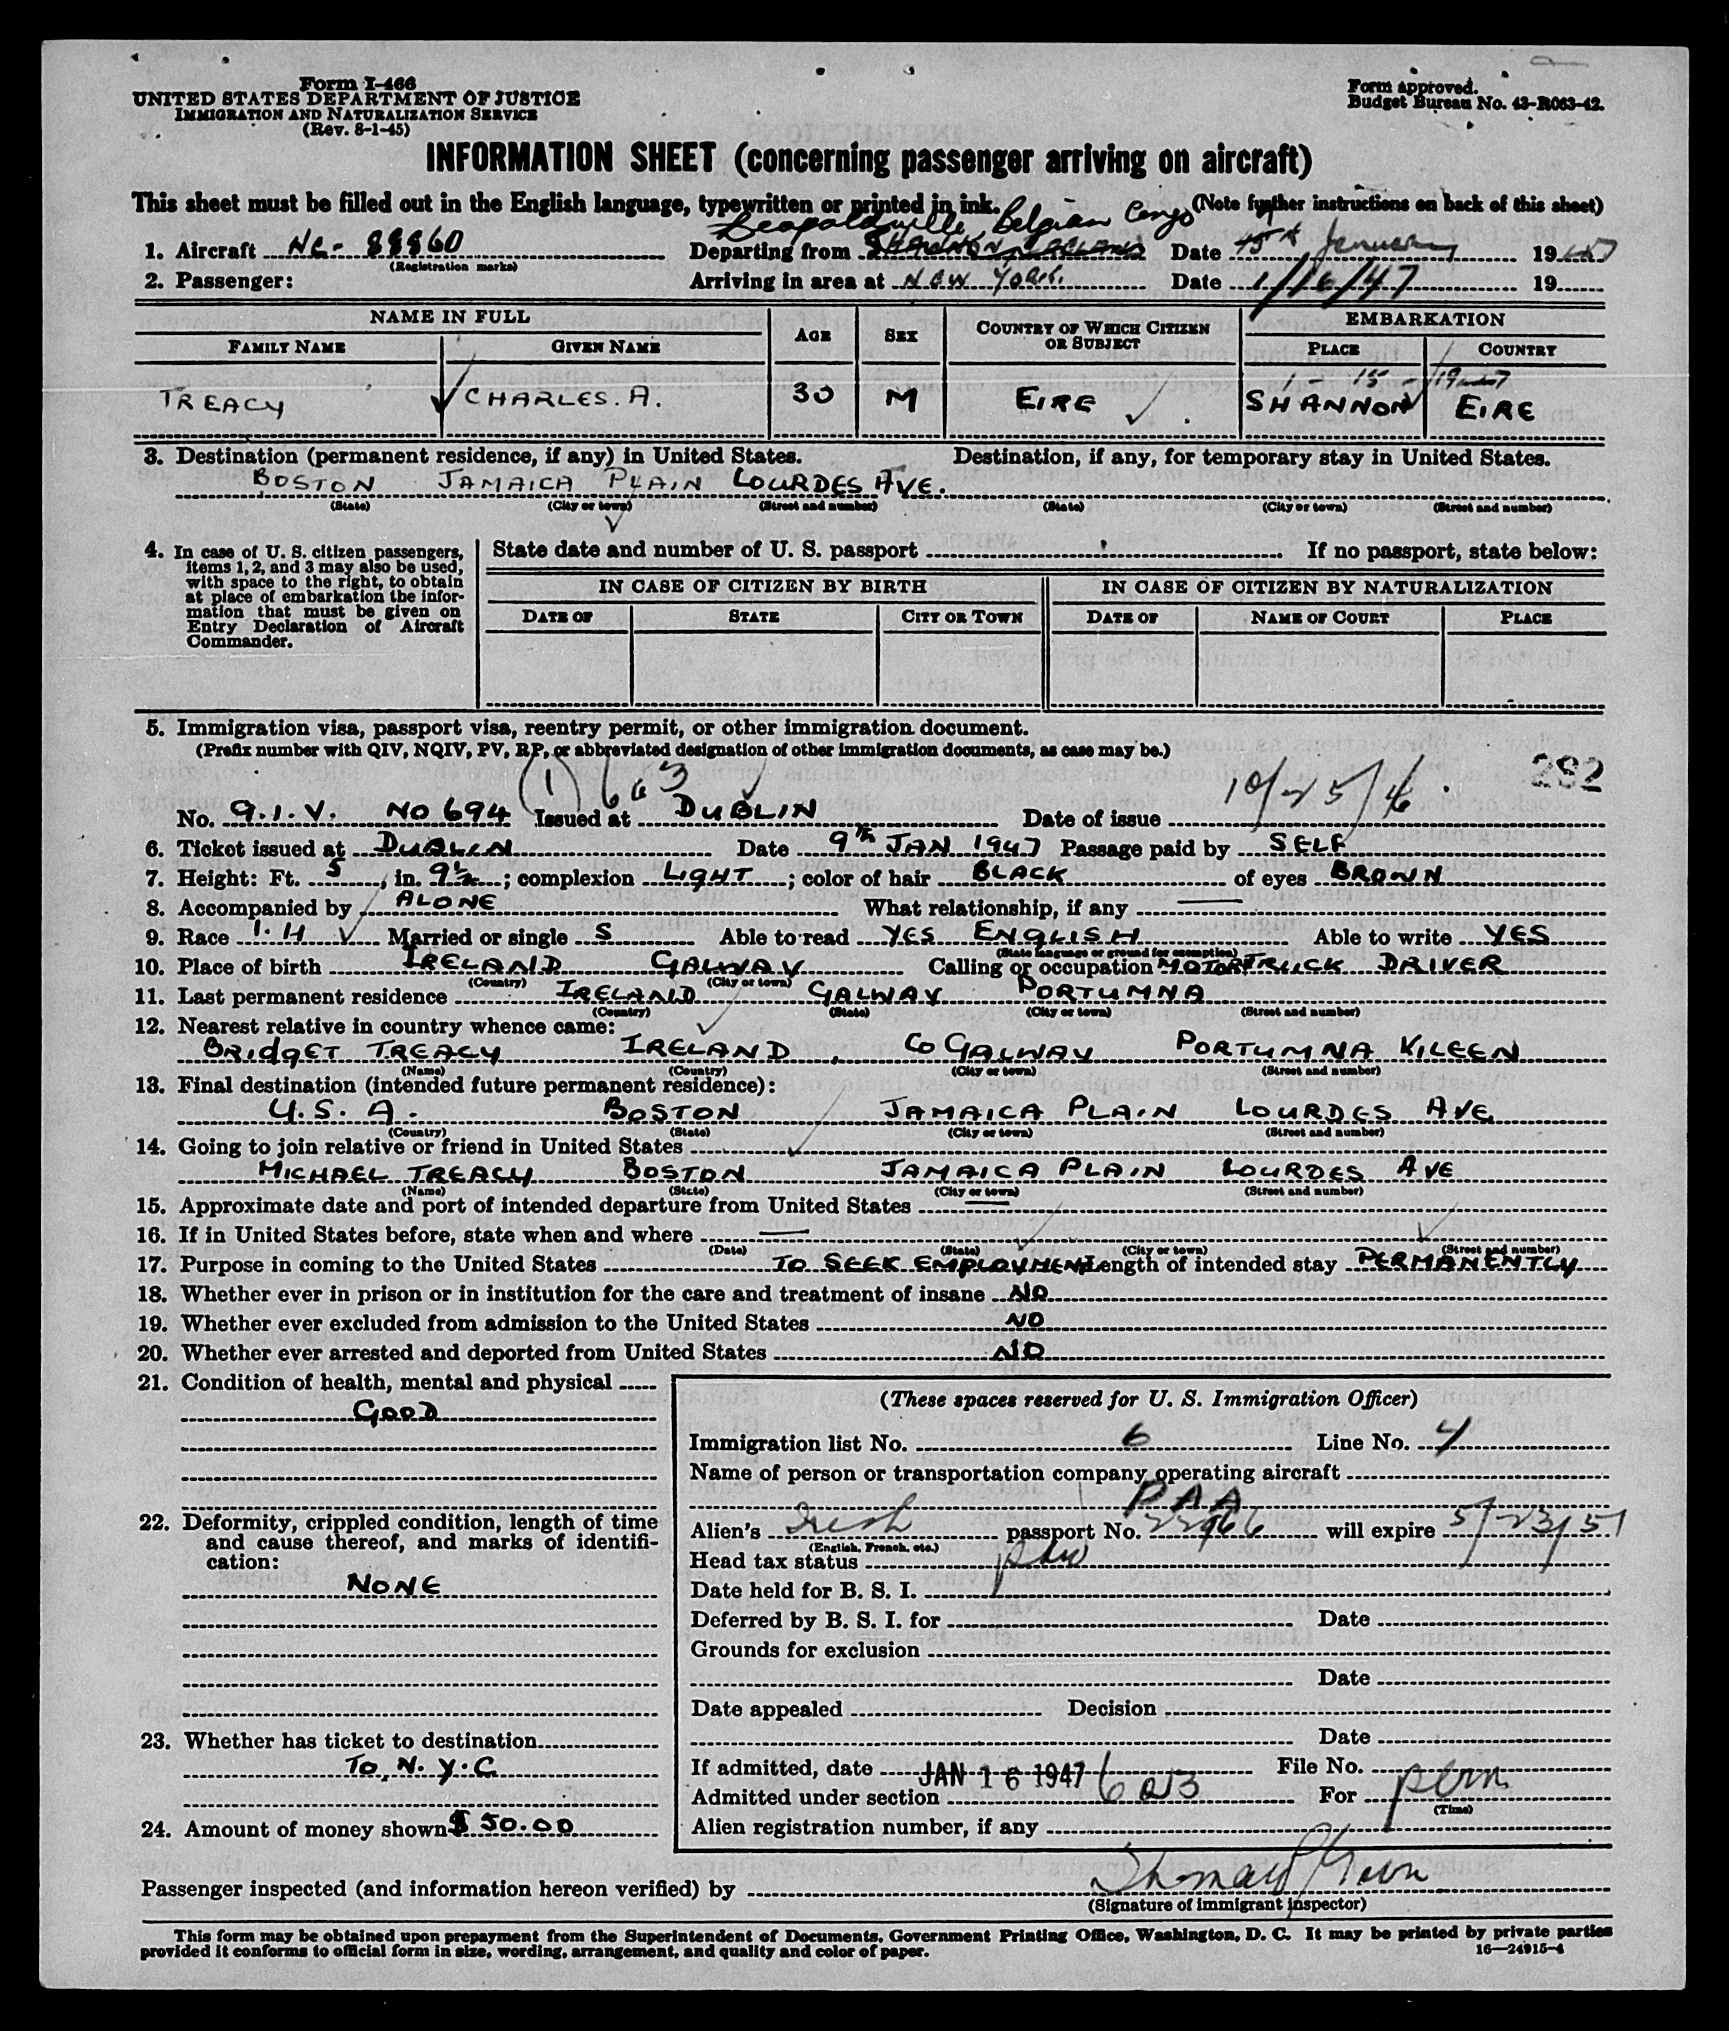 Form I-466
UNITED STATES DEPARTMENT OF JUSTICE
IMMIGRATION AND NATURALIZATION SERVICE
(Rev. 8-1-45)
Form approved.
Budget Bureau No. 43-R063-42.
INFORMATION SHEET (concerning passenger arriving on aircraft)
This sheet must be filled out in the English language, typewritten or printed in ink. (Note further instructions on back of this sheet)
Leopoldville, Belgian Congo
1. Aircraft NC- 88860 Departing from SHANNON, IRELAND Date 15th January 1947
(Registration marks)
2. Passenger: Arriving in area at NEW YORK. Date 1/16/47 19
NAME IN FULL AGE SEX COUNTRY OF WHICH CITIZEN OR SUBJECT EMBARKATION
FAMILY NAME GIVEN NAME PLACE COUNTRY
1 - 15 - 1947
TREACY CHARLES. A. 30 M EIRE SHANNON EIRE
3. Destination (permanent residence, if any) in United States. Destination, if any, for temporary stay in United States.
BOSTON JAMAICA PLAIN LOURDES AVE.
(State) (City or town) (Street and number) (State) (City or town) (Street and number)
4. In case of U. S. citizen passengers, items 1, 2, and 3 may also be used, with space to the right, to obtain at place of embarkation the information that must be given on Entry Declaration of Aircraft Commander.
State date and number of U. S. passport If no passport, state below:
IN CASE OF CITIZEN BY BIRTH IN CASE OF CITIZEN BY NATURALIZATION
DATE OF STATE CITY OR TOWN DATE OF NAME OF COURT PLACE
5. Immigration visa, passport visa, reentry permit, or other immigration document.
(Prefix number with QIV, NQIV, PV, RP, or abbreviated designation of other immigration documents, as case may be.)
(1) 6a3 282
No. Q.I.V. NO 694 Issued at DUBLIN Date of issue 10/25/46
6. Ticket issued at DUBLIN Date 9th JAN 1947 Passage paid by SELF
7. Height: Ft. 5, in. 9½; complexion LIGHT; color of hair BLACK of eyes BROWN
8. Accompanied by ALONE What relationship, if any —
9. Race I.H Married or single S Able to read YES ENGLISH Able to write YES
(State language or ground for exemption)
10. Place of birth IRELAND GALWAY Calling or occupation MOTOR TRUCK DRIVER
(Country) (City or town)
11. Last permanent residence IRELAND GALWAY PORTUMNA
(Country) (State) (City or town) (Street and number)
12. Nearest relative in country whence came:
BRIDGET TREACY IRELAND, CO GALWAY PORTUMNA KILEEN
(Name) (Country) (City or town) (Street and number)
13. Final destination (intended future permanent residence):
U.S. A. BOSTON JAMAICA PLAIN LOURDES AVE
(Country) (State) (City or town) (Street and number)
14. Going to join relative or friend in United States
MICHAEL TREACY BOSTON JAMAICA PLAIN LOURDES AVE
(Name) (State) (City or town) (Street and number)
15. Approximate date and port of intended departure from United States —
16. If in United States before, state when and where —
(Date) (State) (City or town) (Street and number)
17. Purpose in coming to the United States TO SEEK EMPLOYMENT Length of intended stay PERMANENTLY
18. Whether ever in prison or in institution for the care and treatment of insane NO
19. Whether ever excluded from admission to the United States NO
20. Whether ever arrested and deported from United States NO
21. Condition of health, mental and physical
GOOD
22. Deformity, crippled condition, length of time and cause thereof, and marks of identification:
NONE
23. Whether has ticket to destination
TO. N. Y. C
24. Amount of money shown $ 50.00
(These spaces reserved for U. S. Immigration Officer)
Immigration list No. 6 Line No. 4
Name of person or transportation company operating aircraft
PAA
Alien's Irish passport No. will expire 5/23/51
(English, French, etc.)
Head tax status
Date held for B. S. I.
Deferred by B. S. I. for Date
Grounds for exclusion
Date
Date appealed Decision
Date
If admitted, date JAN 16 1947 File No.
Admitted under section 6a3 For perm
(Time)
Alien registration number, if any
Passenger inspected (and information hereon verified) by
(Signature of immigrant inspector)
This form may be obtained upon prepayment from the Superintendent of Documents, Government Printing Office, Washington, D. C. It may be printed by private parties
provided it conforms to official form in size, wording, arrangement, and quality and color of paper. 16—24915-4